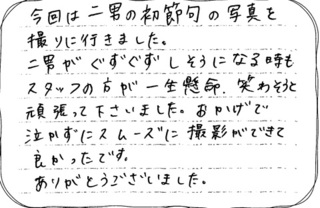 今回は二男の初節句の写真を
撮りに行きました。
二男がぐずぐずしそうになる時も
スタッフの方が一生懸命、笑わそうと
頑張って下さいました。おかげで
泣かずにスムーズに撮影ができて
良かったです。
ありがとうございました。